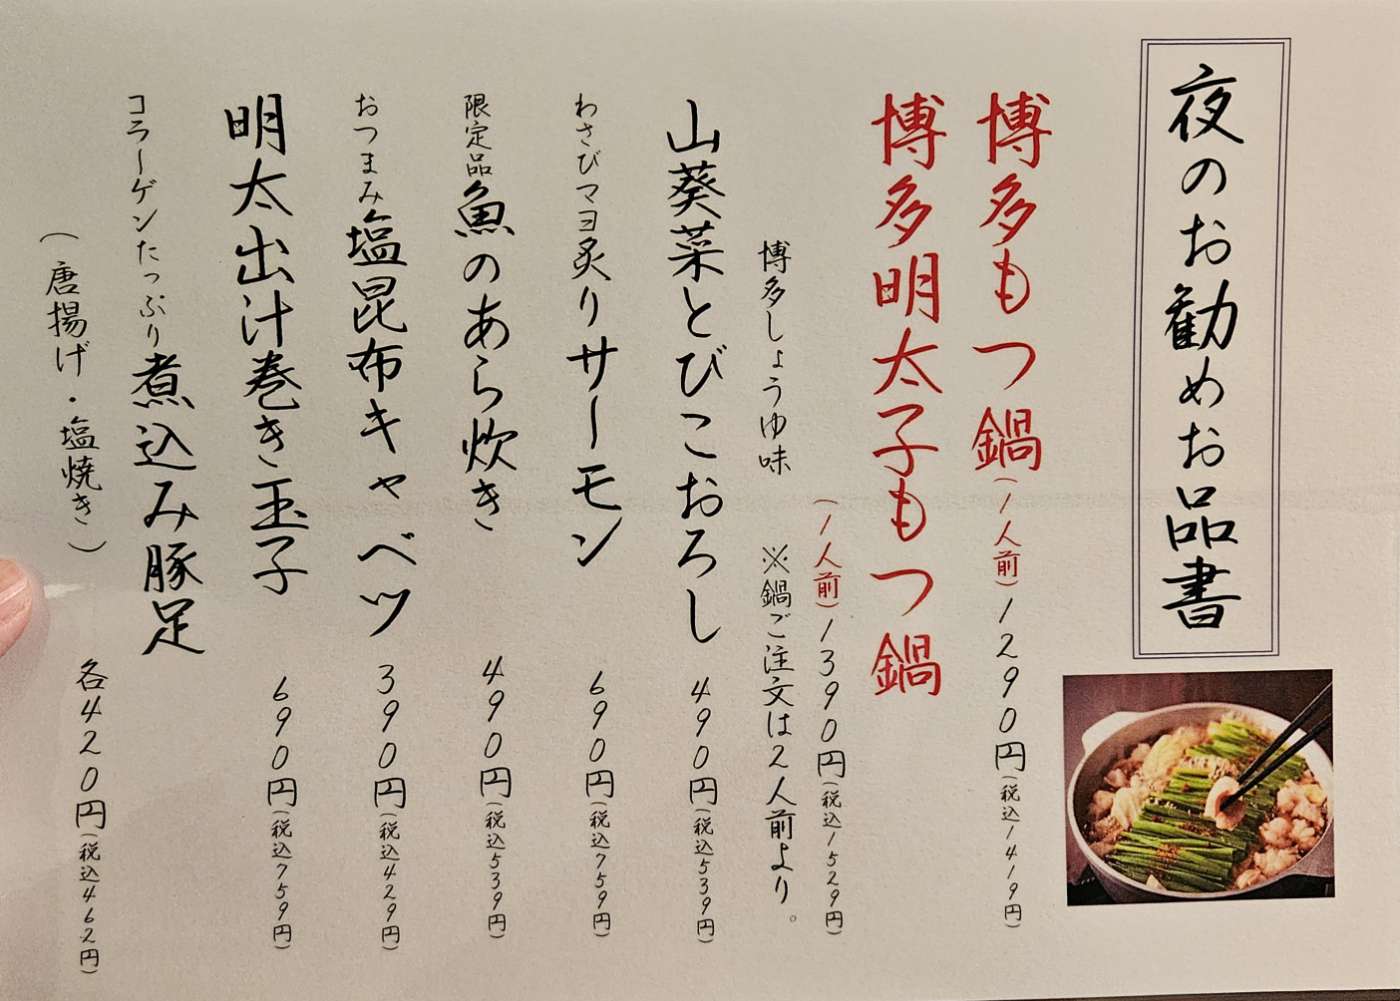 夜のお勧めお品書
博多もつ鍋(1人前)1290円(税込1419円)
博多明太子もつ鍋
(1人前)1390円(税込1529円)
博多しょうゆ味 ※鍋ご注文は2人前より。
山葵菜とびこおろし 490円(税込539円)
わさびマヨ炙りサーモン 690円(税込759円)
限定品魚のあら炊き 490円(税込539円)
おつまみ塩昆布キャベツ 390円(税込429円)
明太出汁巻き玉子 690円(税込759円)
コラーゲンたっぷり煮込み豚足
(唐揚げ・塩焼き) 各420円(税込462円)